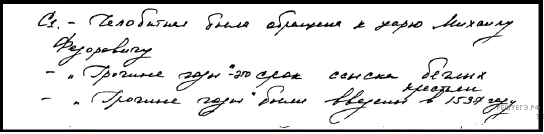 С1. – Челобитная была обращена к царю Михаилу
Федоровичу
– „Урочные годы" - это срок сыска беглых
крестьян
– „Урочные годы" были введены в 1597 году